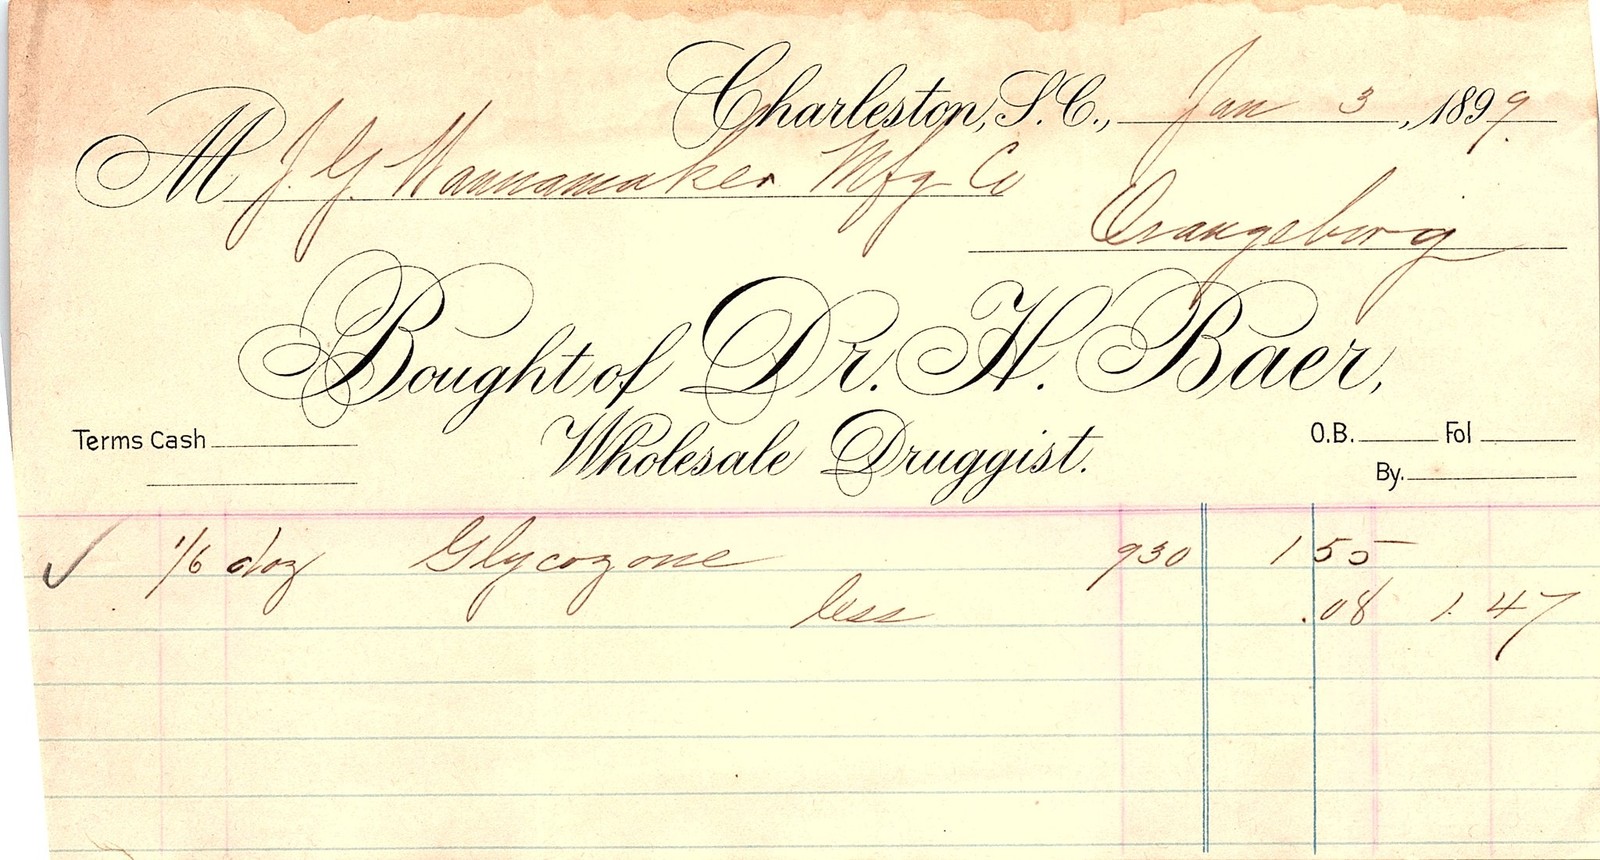 Charleston, S.C., Jan 3, 1899.
M J. G. Wannamaker Mfg Co
Orangeburg
Bought of Dr. H. Baer,
Wholesale Druggist.
Terms Cash
O.B. Fol
By.
✓ 1/6 doz Glycozone 930 1 55
less .08 1.47